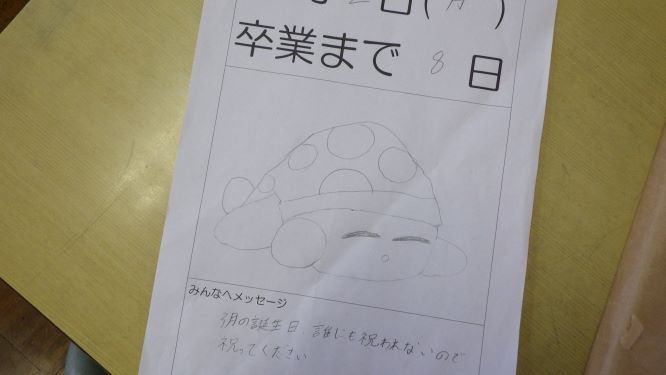 日(月)
卒業まで 8 日
みんなへメッセージ
3月の誕生日、誰にも祝われないので
祝ってください